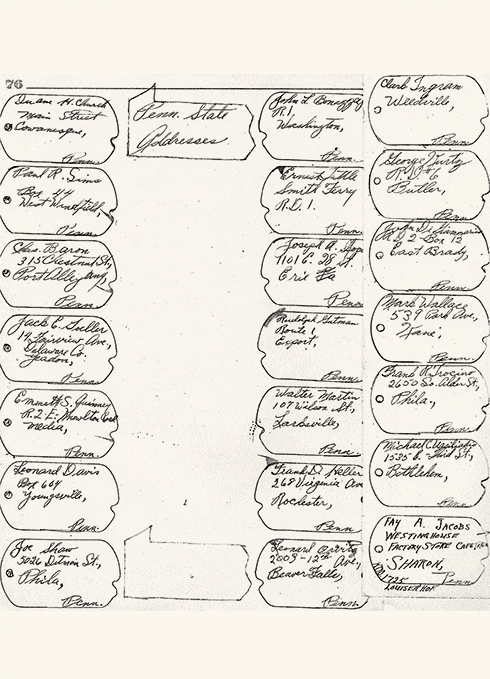 76
Duane H. Church
Main Street
Cowanesque,
Penn.
Paul R. Sims
Box 44
West Winfield,
Penn.
Chas. Baron
315 Chestnut St,
Port Allegany,
Penn
Jack E. Soeller
14 Fairview Ave.,
Delaware Co.
Yeadon,
Penn.
Emmett S.
R. 2 E.
Media,
Penn.
Leonard Davis
Box 604
Youngsville,
Penn.
Joe Shaw
5026 Ditman St.,
Phila,
Penn.
Penn. State
Addresses
John L.
R.1.
Washington,
Penn.
Ernest Tuttle
Smith Ferry
R.D. 1.
Penn.
Joseph A.
1101 E. 28 St.
Erie Pa
Penn
Rudolph Gutman
Route 1
Export,
Penn.
Walter Martin
107 Wilson St,
Larksville,
Penn.
Frank D. Heller
268 Virginia Ave
Rochester,
Penn
Leonard
2508-12th Ave,
Beaver Falls,
Penn.
Clark Ingram
Weedville,
Penn
George Turtz
R.D. 6
Butler,
Penn
John
R D 2 Box 12
East Brady,
Penn.
Mark Wallace
539 Park Ave.,
Kane,
Penn
Frank R. Trocino
2650 So. Alder St,
Phila.,
Penn.
Michael C.
1535 E. Third St.,
Bethlehem,
Penn
FAY A. JACOBS
WESTINGHOUSE
FACTORY STORE
SHARON,
1725
Penn